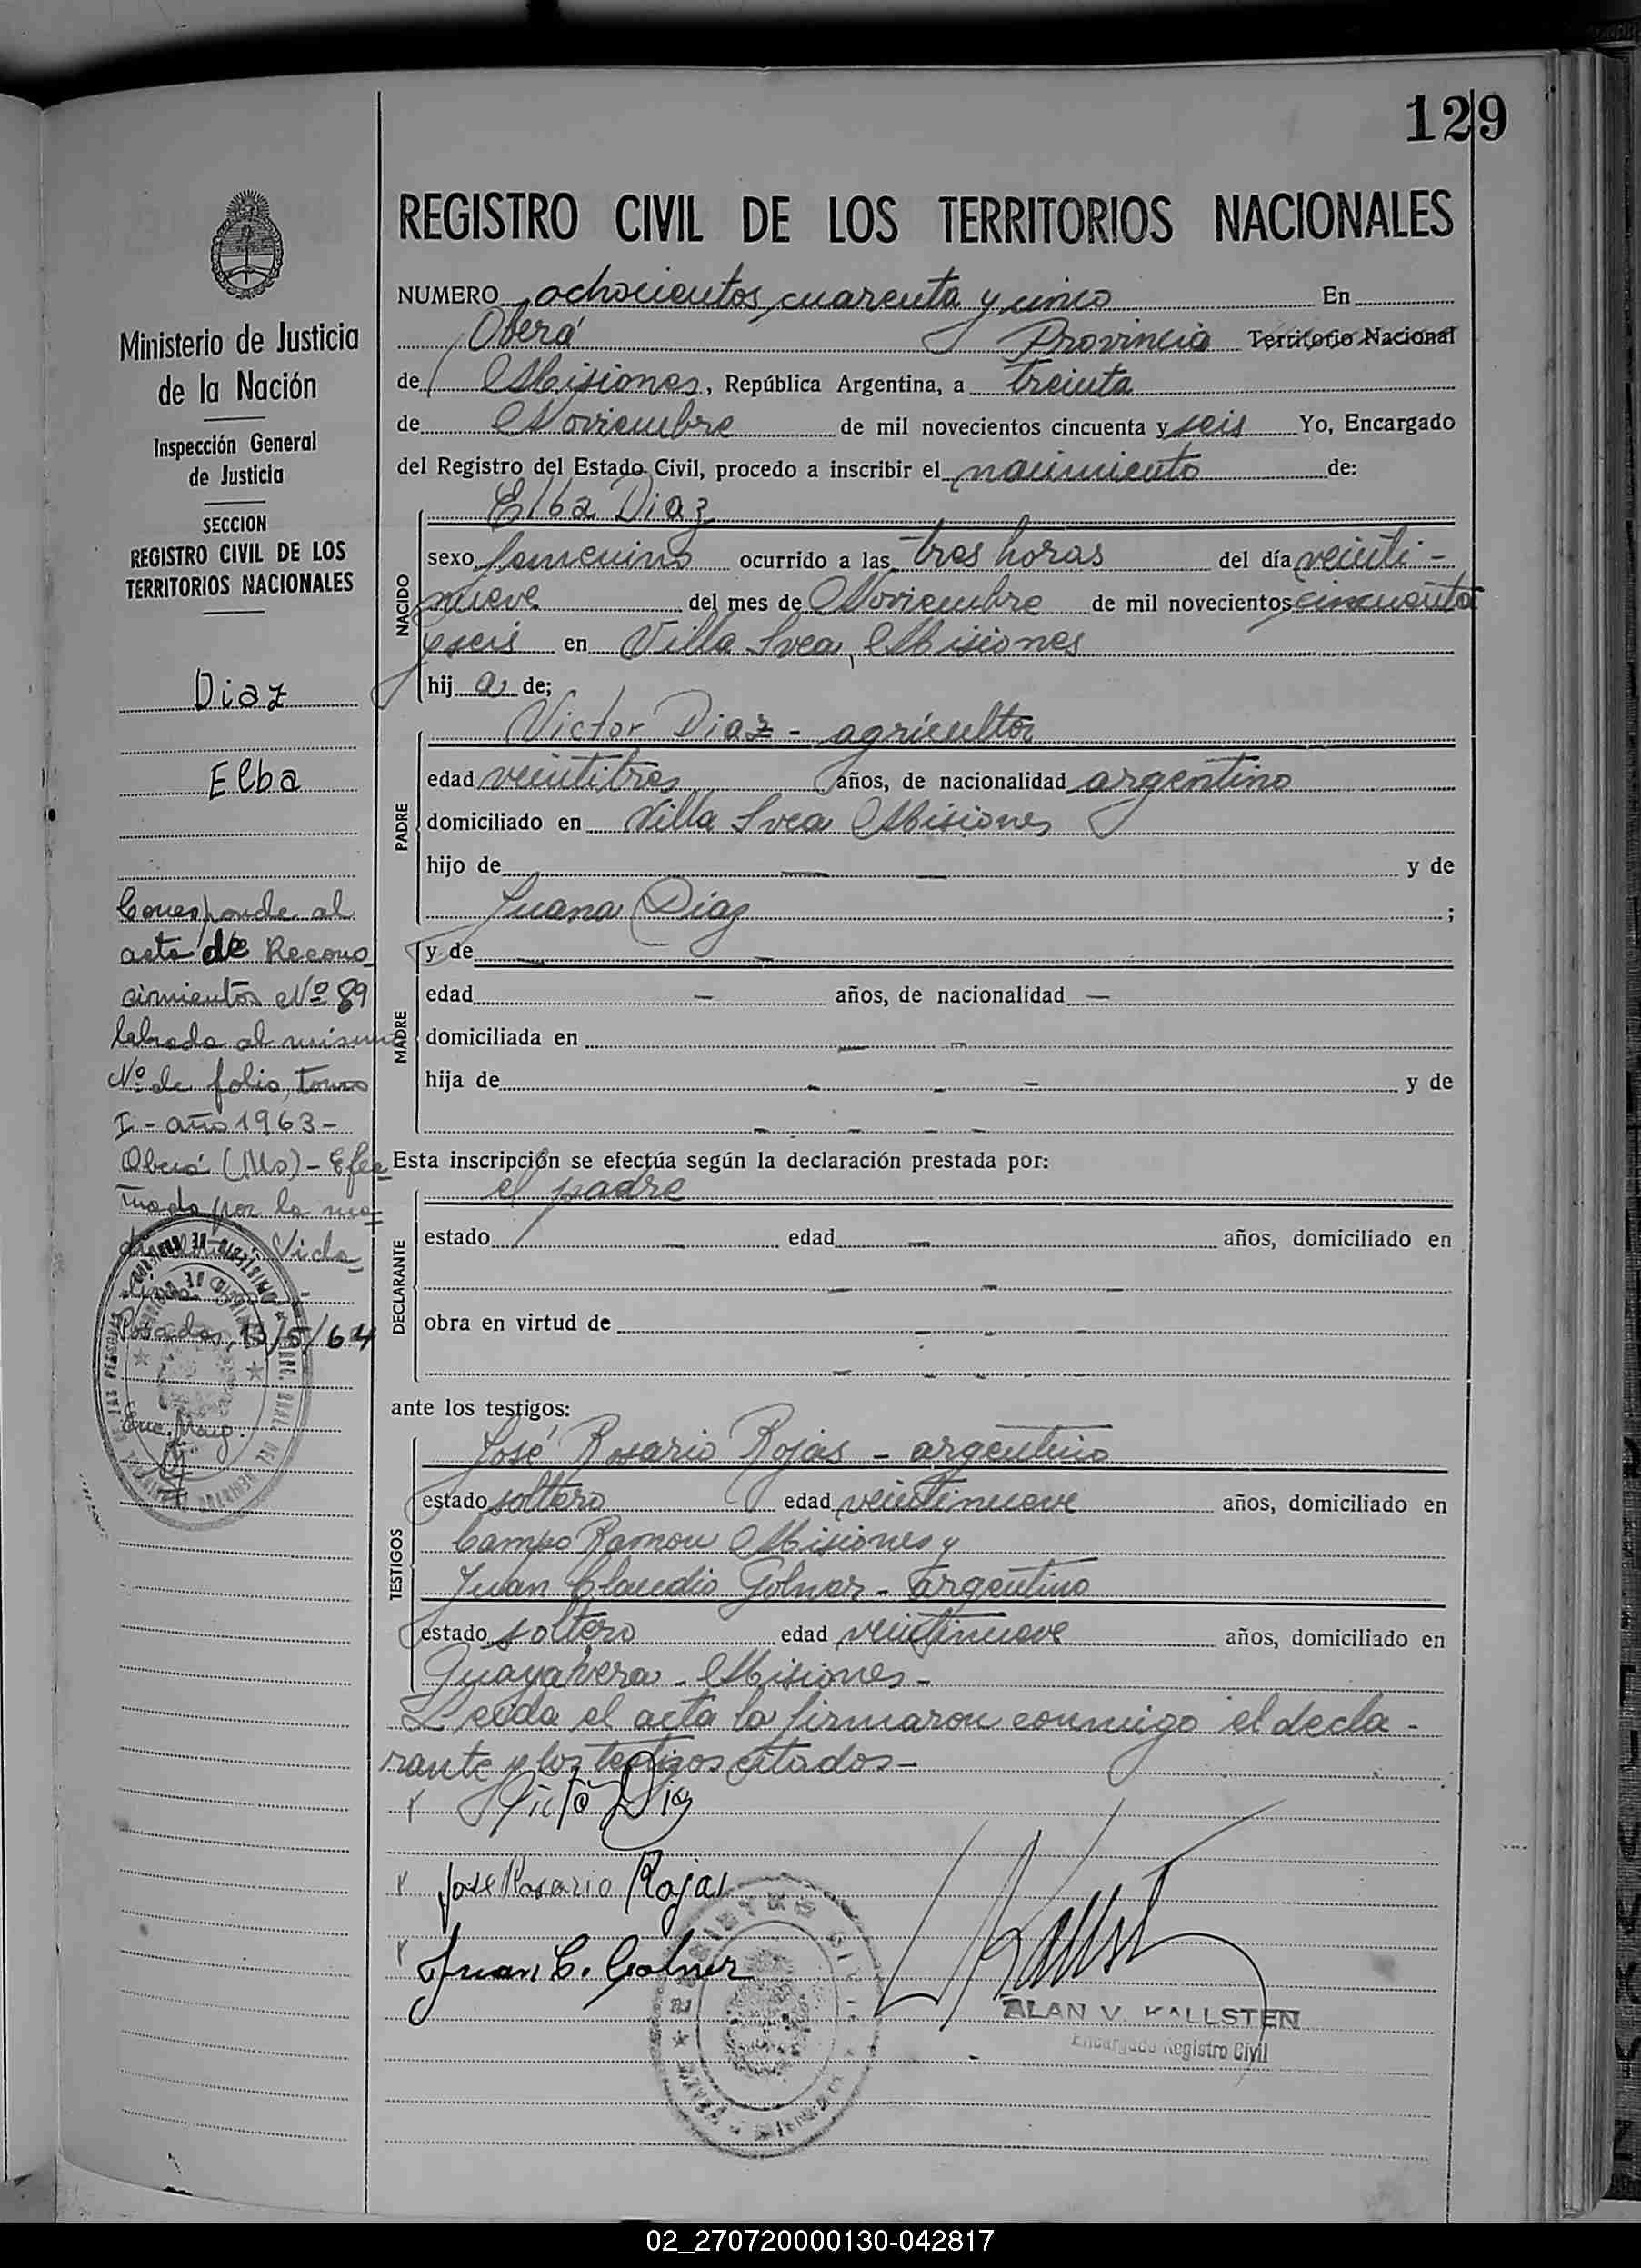 129
REGISTRO CIVIL DE LOS TERRITORIOS NACIONALES
NUMERO ochocientos cuarenta y cinco En
Oberá Provincia Territorio Nacional
de Misiones, República Argentina, a treinta
de Noviembre de mil novecientos cincuenta y seis Yo, Encargado
del Registro del Estado Civil, procedo a inscribir el nacimiento de:
NACIDO
Elba Diaz
sexo femenino ocurrido a las tres horas del día veinti-
nueve del mes de Noviembre de mil novecientos cincuenta
y seis en Villa Svea, Misiones
hij a de;
PADRE
Victor Diaz - agricultor
edad veintitres años, de nacionalidad argentino
domiciliado en Villa Svea Misiones
hijo de — — y de
Juana Diaz ;
MADRE
y de — —
edad — años, de nacionalidad —
domiciliada en — —
hija de - - — y de
- - - -
Esta inscripción se efectúa según la declaración prestada por:
DECLARANTE
el padre
estado — edad — años, domiciliado en
— — —
obra en virtud de — - —
— - — -
ante los testigos:
TESTIGOS
José Rosario Rojas - argentino
estado soltero edad veintinueve años, domiciliado en
Campo Ramon Misiones y
Juan Claudio Golner - argentino
estado soltero edad veintinueve años, domiciliado en
Guayabera - Misiones -
Leida el acta la firmaron conmigo el decla-
rante y los testigos citados -
Victor Diaz
Jose Rosario Rojas
Juan C. Golner
ALAN V. KALLSTEN
Encargado Registro Civil
Ministerio de Justicia
de la Nación
Inspección General
de Justicia
SECCION
REGISTRO CIVIL DE LOS
TERRITORIOS NACIONALES
Diaz
Elba
Corresponde al
acta de Recono
cimientos Nº 89
labrada al mismo
Nº de folio, tomo
I - año 1963 -
Oberá (Ms) - Efec
tuado por la ma
Posadas, 13/5/64
02_270720000130-042817